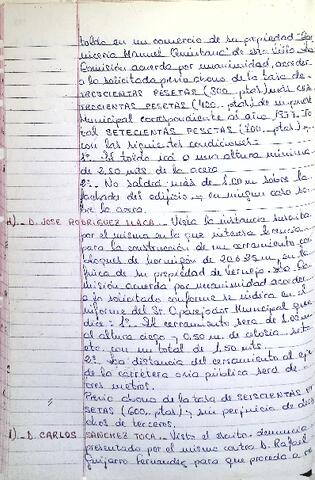 toldo en un comercio de su propiedad "Car
nicería Manuel Quintana" de esta Villa. La
Comisión acuerda por unanimidad, acceder
a lo solicitado previo abono de la tasa de
TRESCIENTAS PESETAS (300 ptas.) más CUA
TROCIENTAS PESETAS (400 ptas.) de
Municipal correspondiente al año 1977. To
tal SETECIENTAS PESETAS (700 ptas.) y
con las siguientes condiciones:
1º. El toldo irá a una altura mínima
de 2,50 mts. de la acera
2º. No saldrá más de 1,00 m. sobre la
fachada del edificio y en ningun caso so
bre la acera.
D. JOSE RODRIGUEZ LLACA. Vista la instancia suscrita
por el mismo en la que interesa licencia
para la construcción de un cerramiento con
bloques de hormigón de 20 x 25 m, en la
finca de su propiedad de La Co
misión acuerda por unanimidad acceder
a lo solicitado conforme se indica en el
informe del Sr. Aparejador Municipal que
dice: 1º. El cerramiento será de 1,00 m
altura ciego y 0,50 m. de celosia, seto
etc. con un total de 1,50 mts.
2º. La distancia del cerramiento al eje
de la carretera o via pública será de
tres metros.
Previo abono de la tasa de SEISCIENTAS PE
SETAS (600 ptas.) y sin perjuicio de
de terceros.
D. CARLOS SANCHEZ TOCA. Visto el escrito denuncia
presentado por el mismo contra D. Rafael
Guijarro Fernandez para que proceda a